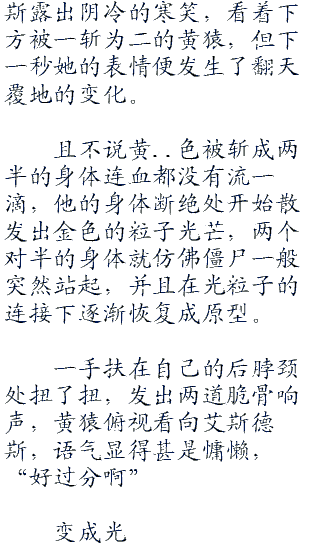 斯露出阴冷的寒笑，看着下
方被一斩为二的黄猿，但下
一秒她的表情便发生了翻天
覆地的变化。
且不说黄..色被斩成两
半的身体连血都没有流一
滴，他的身体断绝处开始散
发出金色的粒子光芒，两个
对半的身体就仿佛僵尸一般
突然站起，并且在光粒子的
连接下逐渐恢复成原型。
一手扶在自己的后脖颈
处扭了扭，发出两道脆骨响
声，黄猿俯视看向艾斯德
斯，语气显得甚是慵懒，
“好过分啊”
变成光